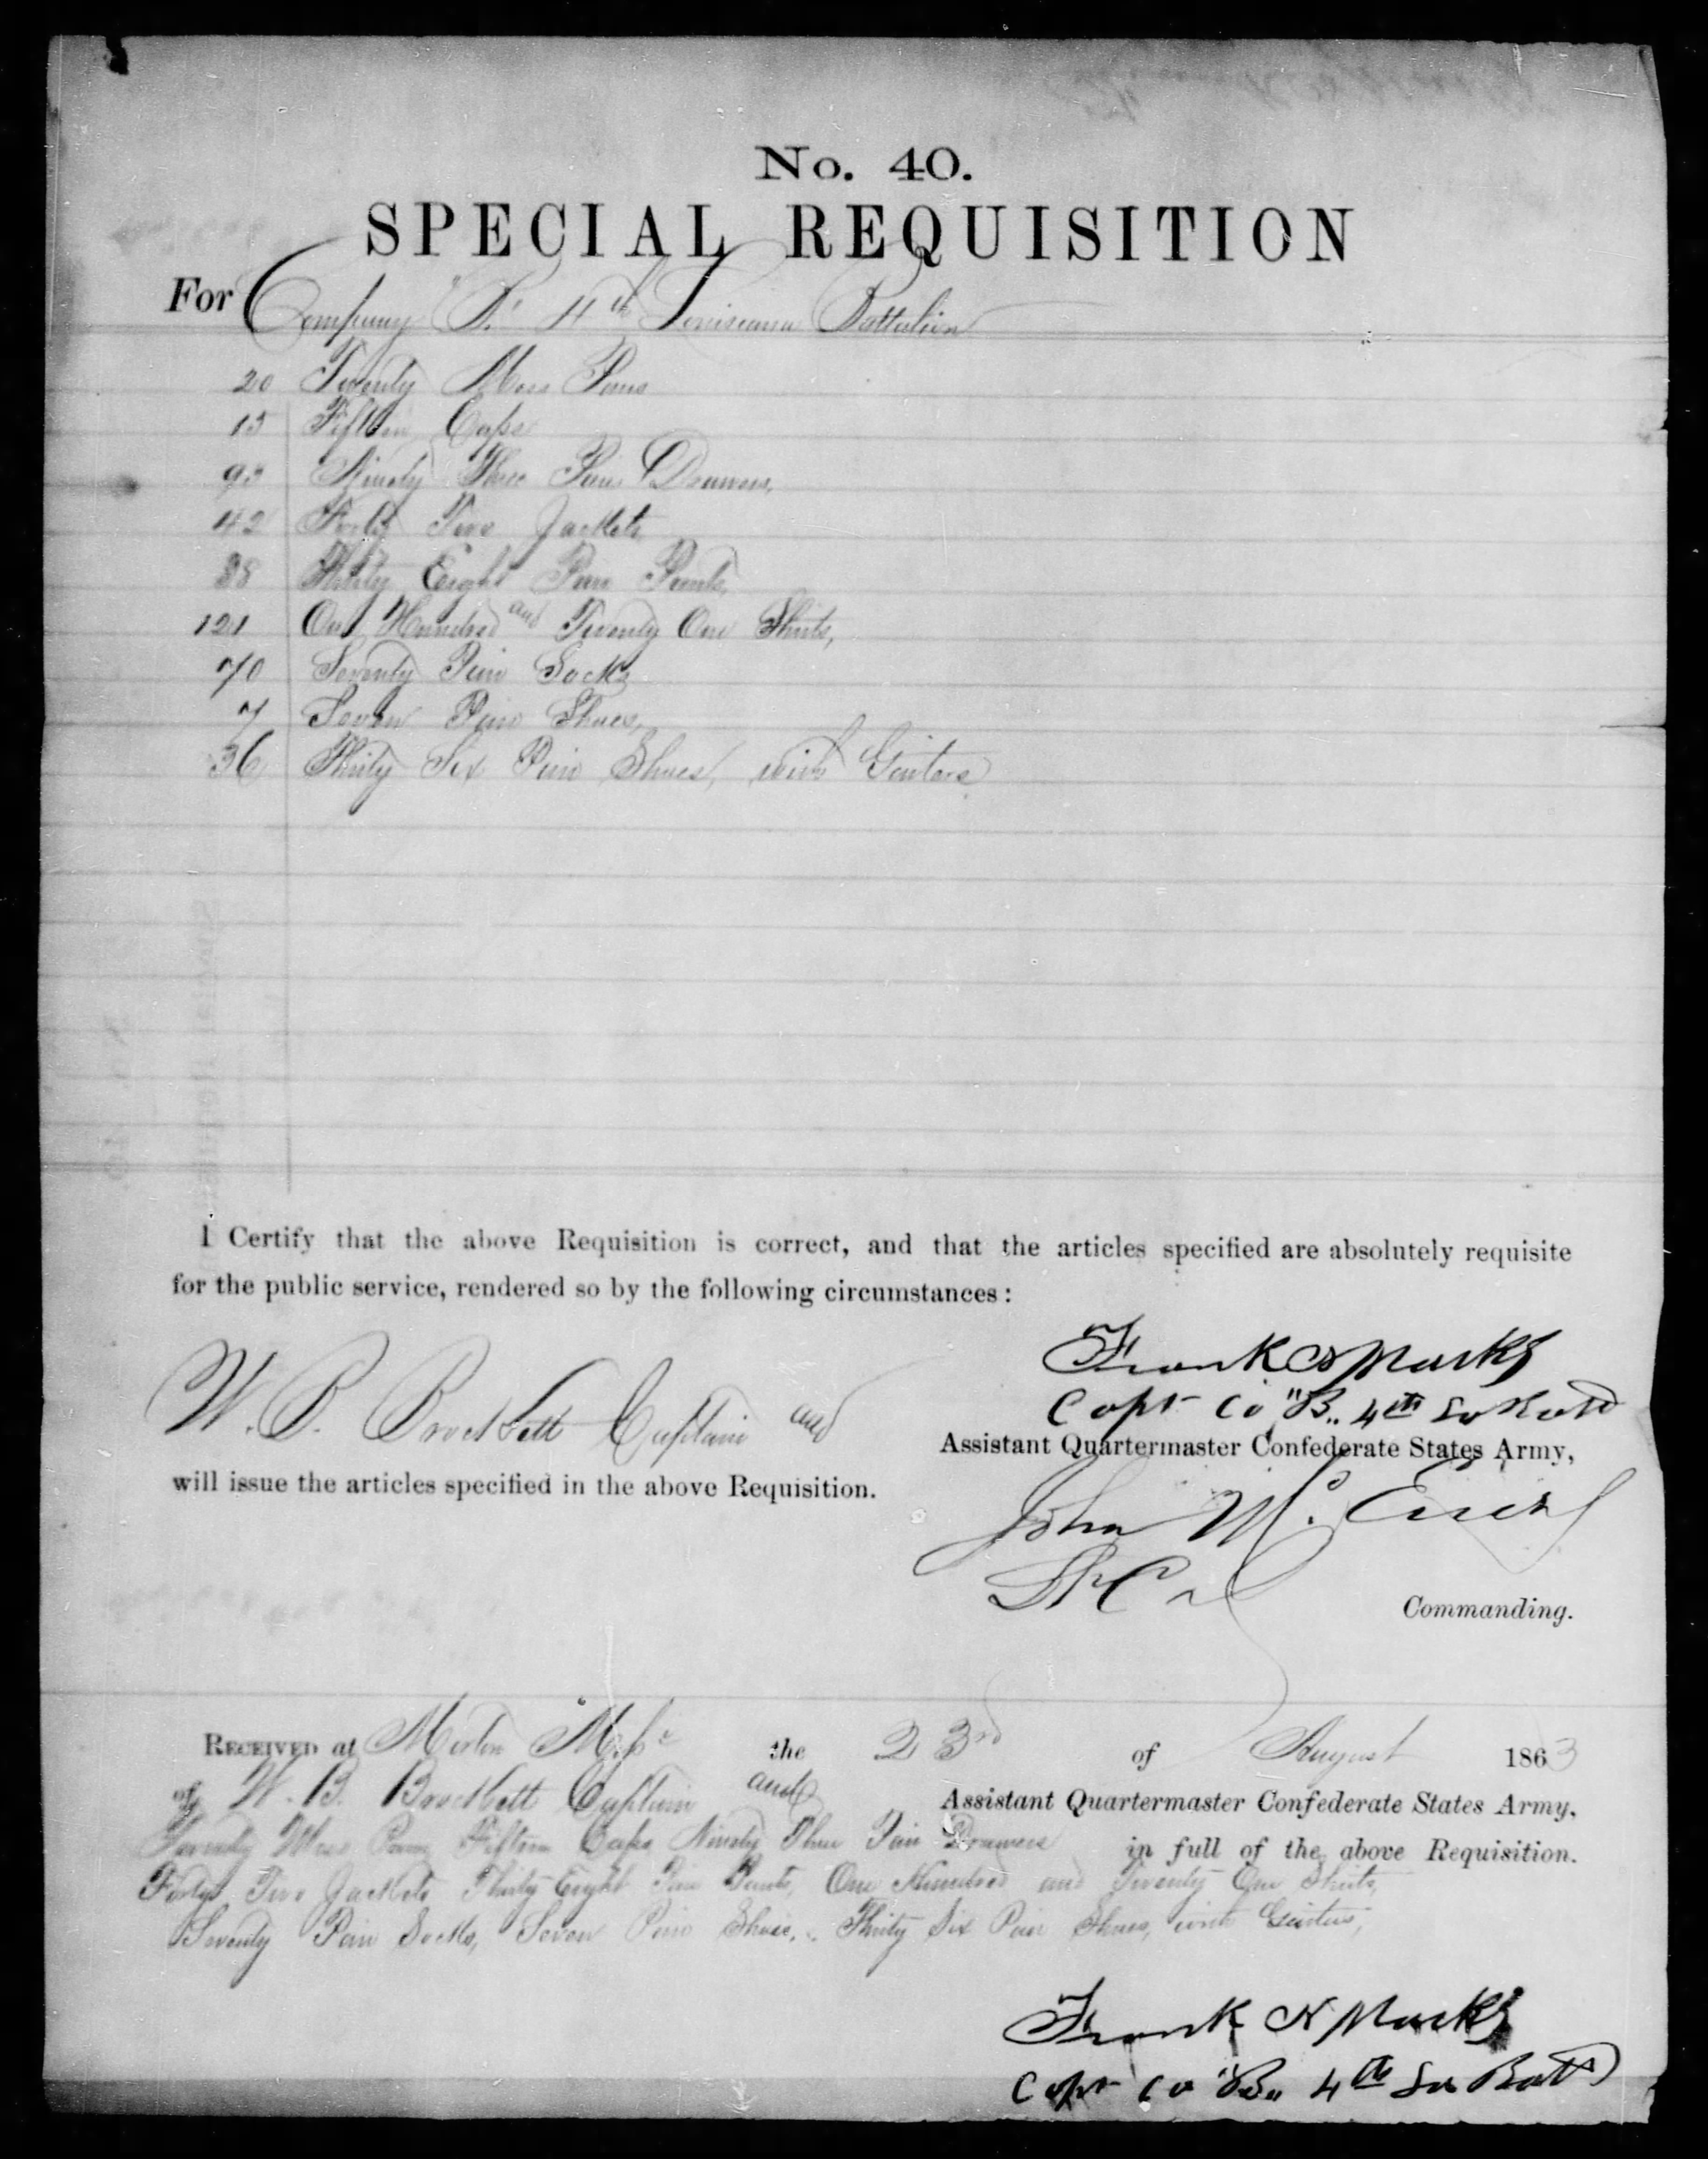 No. 40.
SPECIAL REQUISITION
For Company "B" 4th Louisiana Battalion
20 Twenty Mess Pans
15 Fifteen Caps
93 Ninety Three Pair Drawers,
42 Forty Two Jackets
38 Thirty Eight Pair Pants,
121 One Hundred and Twenty One Shirts,
70 Seventy Pair Socks
7 Seven Pair Shoes,
36 Thirty Six Pair Shoes, with Gaiters
I Certify that the above Requisition is correct, and that the articles specified are absolutely requisite
for the public service, rendered so by the following circumstances:
Frank N Marks
Capt Co "B" 4th La Batt
W. B. Brockett Captain and
Assistant Quartermaster Confederate States Army,
will issue the articles specified in the above Requisition.
John M.
Lt Col
Commanding.
RECEIVED at Morton the 23rd of August 1863
of W. B. Brockett Captain and Assistant Quartermaster Confederate States Army,
Twenty Mess Pans Fifteen Caps Ninety Three Pair Drawers in full of the above Requisition.
Forty Two Jackets Thirty Eight Pair Pants, One Hundred and Twenty One Shirts,
Seventy Pair Socks, Seven Pair Shoes, Thirty Six Pair Shoes, with Gaiters,
Frank N Marks
Capt Co "B" 4th La Batt